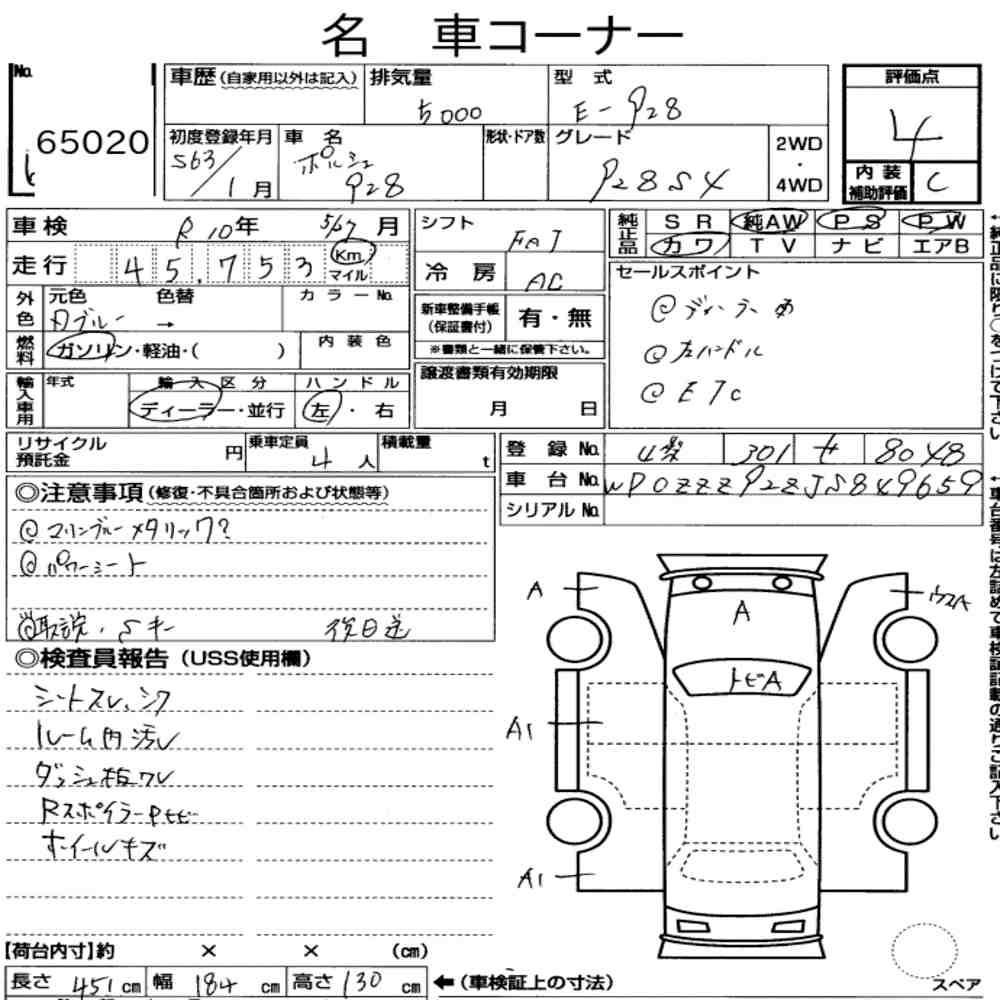 名 車コーナー
No. 65020
車歴(自家用以外は記入)
排気量 5000
型 式 E-928
初度登録年月 S63/1月
車 名 ポルシェ 928
形状・ドア数
グレード 928S4
2WD・4WD
評価点 4
内装補助評価 C
車検 R10年 月
走行 45,753 Km マイル
外色 元色 色替 カラーNo.
ブルー →
燃料 ガソリン・軽油・( )
内装色
輸入車用 年式
輸入区分 ディーラー・並行
ハンドル 左・右
シフト FAT
冷房 AC
新車整備手帳(保証書付) 有・無
※書類と一緒に保管下さい。
譲渡書類有効期限
月 日
純正品 SR 純AW PS PW
カワ TV ナビ エアB
セールスポイント
@ディーラー
@左ハンドル
@ETC
リサイクル預託金 円
乗車定員 4人
積載量 t
登録No. 301 8048
車台No. WP0ZZZ92ZJS849659
シリアルNo.
◎注意事項(修復・不具合箇所および状態等)
@マリンブルーメタリック?
@パワーシート
@取説・Sキー 後日送
◎検査員報告(USS使用欄)
シートスレ、シワ
ルーム内汚レ
ダッシュ板ワレ
Rスポイラー
ホイールキズ
A
A
ウスA
トビA
A1
A1
【荷台内寸】約 × × (cm)
長さ 451cm 幅 184cm 高さ 130cm
←(車検証上の寸法)
スペア
↑純正品に限り○をつけて下さい
↑車台番号は左詰めで車検証記載の通りご記入下さい